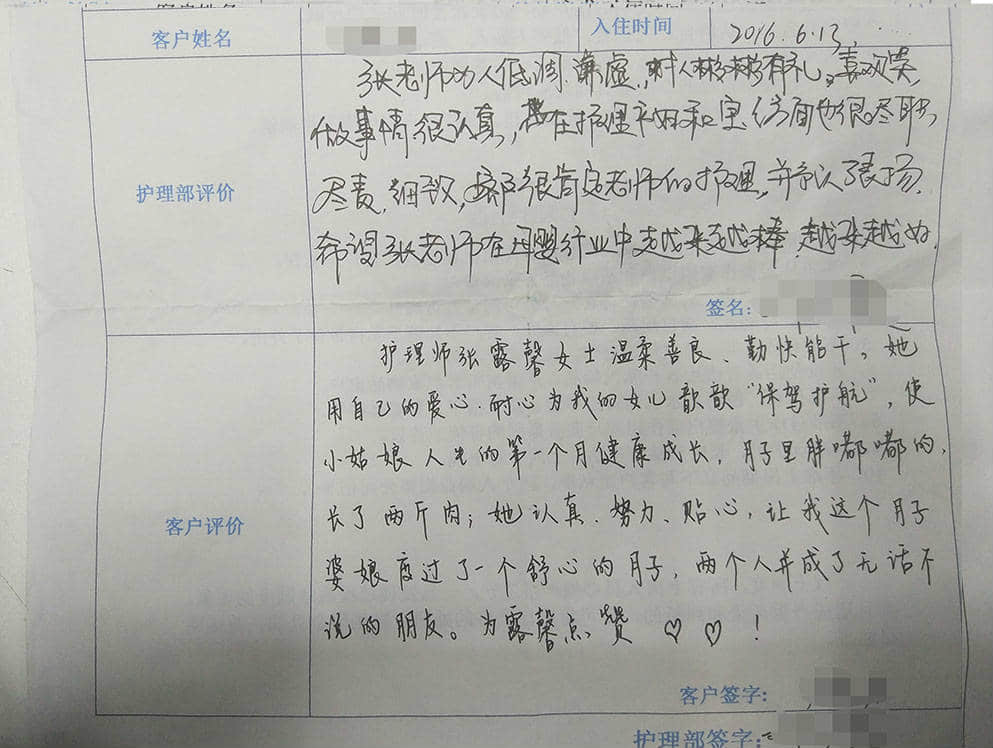 客户姓名
入住时间
2016.6.13
护理部评价
张老师为人低调.谦虚,对人彬彬有礼,喜欢笑,
做事情很认真,在护理产妇和宝宝方面也很尽职
尽责,细致,很肯定老师的护理,并予以表扬.
希望张老师在母婴行业中越来越棒.越来越好.
签名:
客户评价
护理师张露馨女士温柔善良、勤快能干。她
用自己的爱心.耐心为我的女儿歆歆“保驾护航”,使
小姑娘人生的第一个月健康成长,月子里胖嘟嘟的,
长了两斤肉;她认真.努力.贴心,让我这个月子
婆娘度过了一个舒心的月子,两个人并成了无话不
说的朋友。为露馨点赞 ♡ ♡ !
客户签字:
护理部签字: